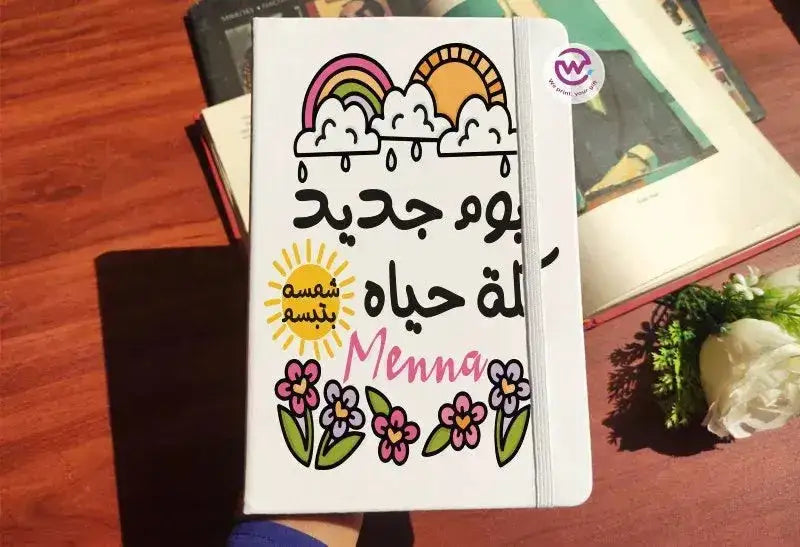 We print your gift
يوم جديد
كلة حياه
شمسه
بتبسم
Menna